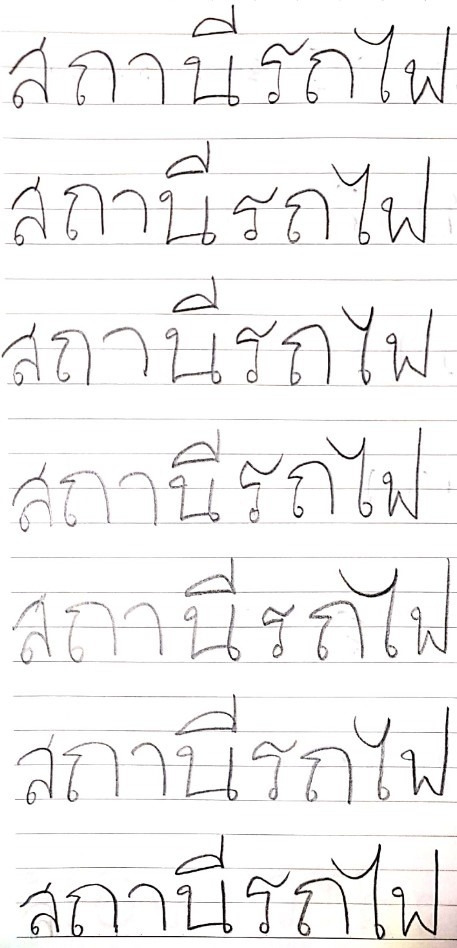 สถานีรถไฟ
สถานีรถไฟ
สถานีรถไฟ
สถานีรถไฟ
สถานีรถไฟ
สถานีรถไฟ
สถานีรถไฟ